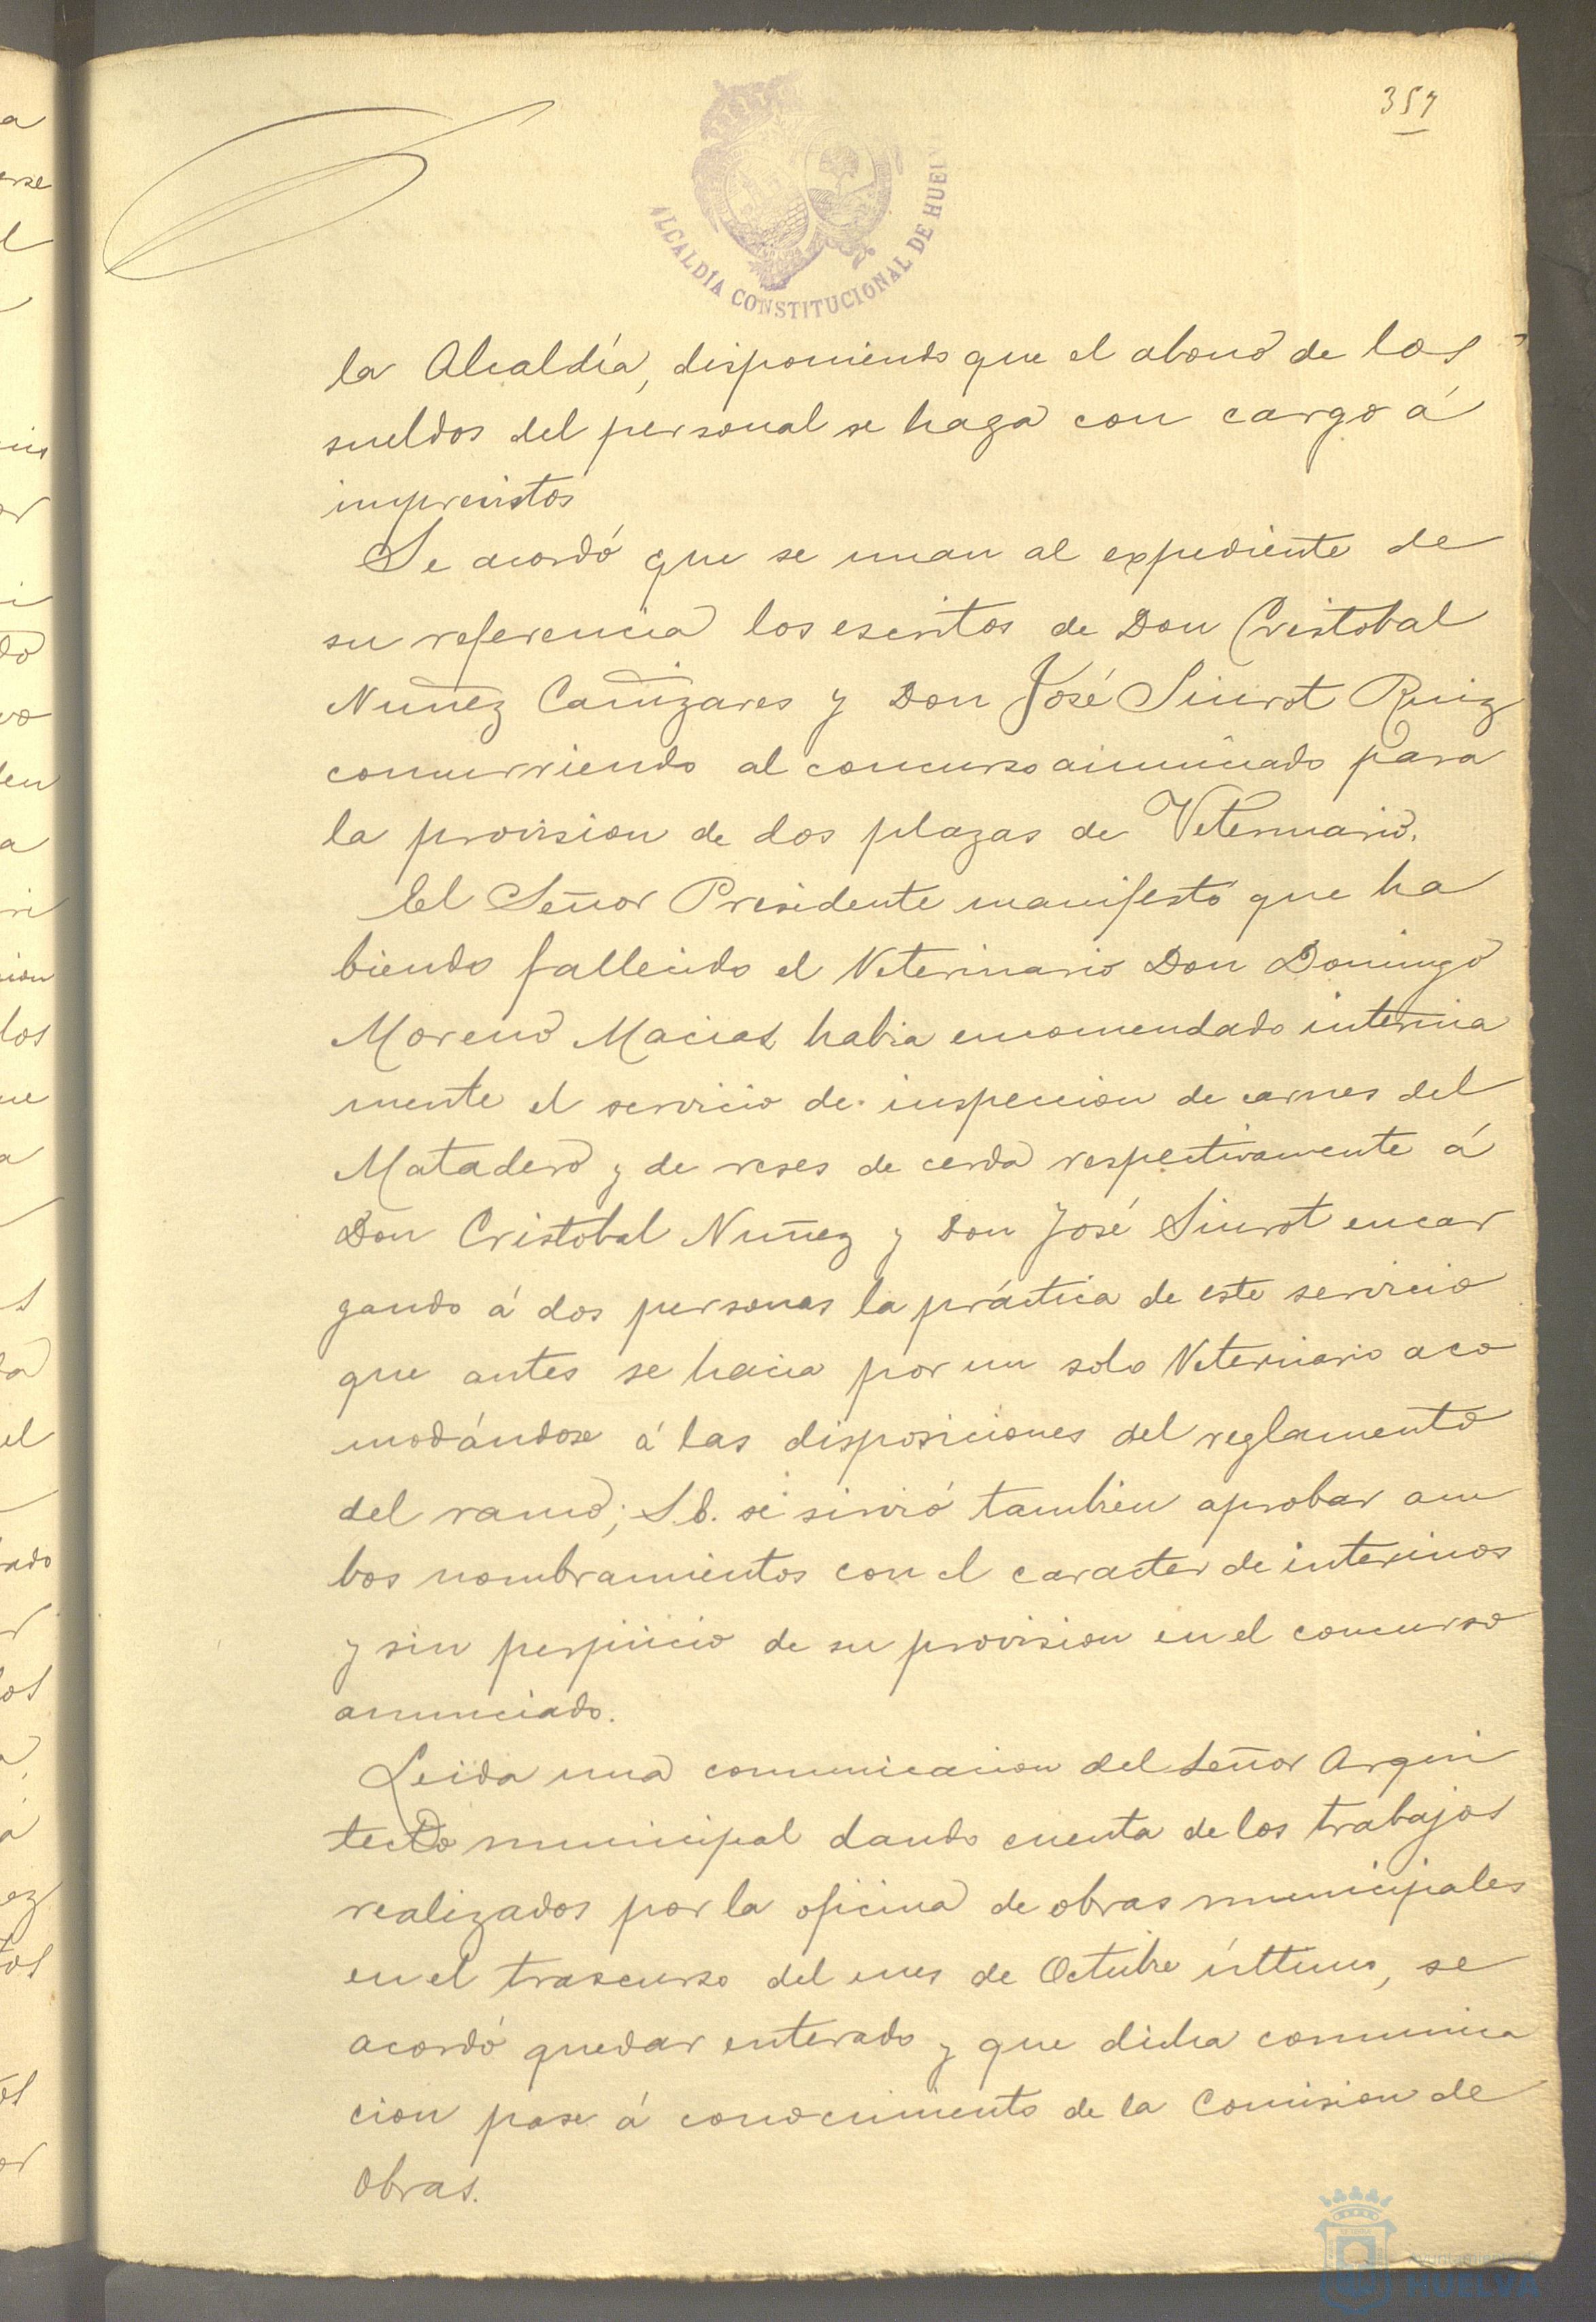 357
ALCALDÍA CONSTITUCIONAL DE HUEL
la Alcaldía, disponiendo que el abono de los
sueldos del personal se haga con cargo á
imprevistos
Se acordó que se unan al expediente de
su referencia los escritos de Don Cristobal
Nuñez Cañizares y Don José Siurot Ruiz
concurriendo al concurso anunciado para
la provision de dos plazas de Veterinario.
El Señor Presidente manifestó que ha
biendo fallecido el Veterinario Don Domingo
Moreno Macias habia encomendado interina
mente el servicio de inspeccion de carnes del
Matadero y de reses de cerda respectivamente á
Don Cristobal Nuñez y Don José Siurot encar
gando á dos personas la práctica de este servicio
que antes se hacia por un solo Veterinario aco
modándose á las disposiciones del reglamento
del ramo; S.E. se sirvió tambien aprobar am
bos nombramientos con el caracter de interinos
y sin perjuicio de su provision en el concurso
anunciado.
Leida una comunicacion del Señor Arqui
tecto municipal dando cuenta de los trabajos
realizados por la oficina de obras municipales
en el trascurso del mes de Octubre último, se
acordó quedar enterado y que dicha comunica
cion pase á conocimiento de la Comision de
Obras.
HUELVA